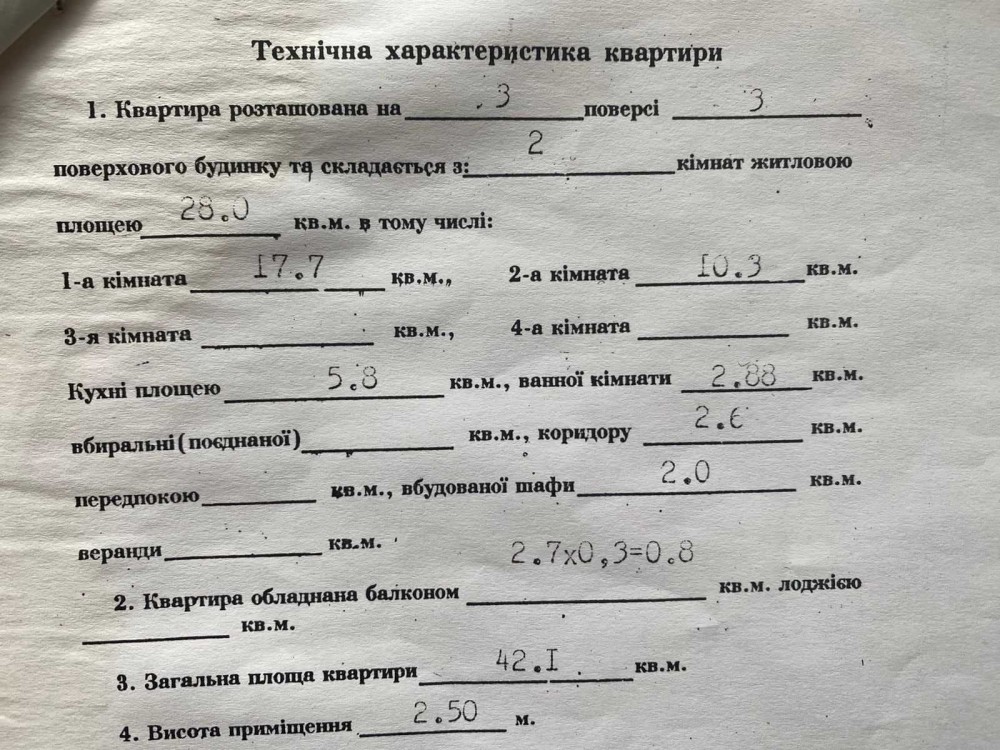 Технічна характеристика квартири
1. Квартира розташована на 3 поверсі 3
поверхового будинку та складається з: 2 кімнат житловою
площею 28.0 кв.м. в тому числі:
1-а кімната I7.7 кв.м., 2-а кімната I0.3 кв.м.
3-я кімната кв.м., 4-а кімната кв.м.
Кухні площею 5.8 кв.м., ванної кімнати 2.88 кв.м.
вбиральні (поєднаної) кв.м., коридору 2.6 кв.м.
передпокою кв.м., вбудованої шафи 2.0 кв.м.
веранди кв.м.
2.7х0,3=0.8
2. Квартира обладнана балконом кв.м. лоджією
кв.м.
3. Загальна площа квартири 42.I кв.м.
4. Висота приміщення 2.50 м.